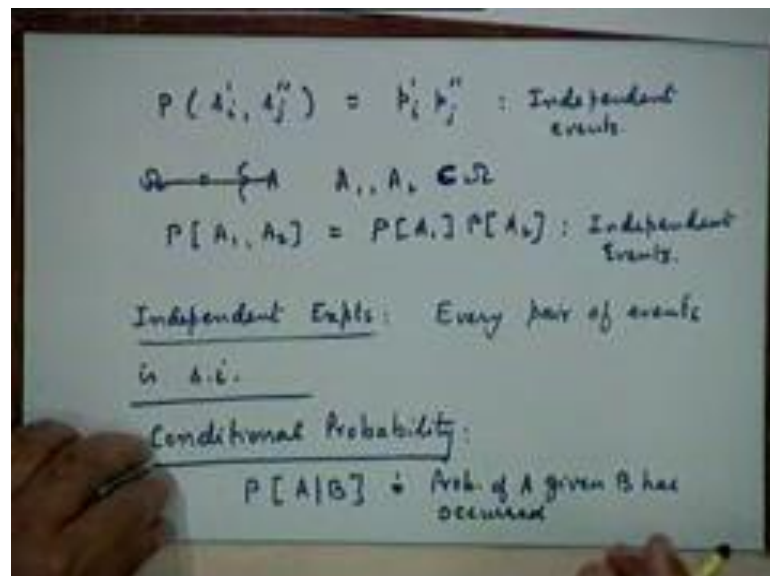 P(s'i, s''j) = p'i p''j : Independent
events.
A1, A2 ⊂ Ω
P[A1, A2] = P[A1] P[A2] : Independent
Events.
Independent Expts: Every pair of events
is s.i.
Conditional Probability:
P[A|B] : Prob. of A given B has
occurred